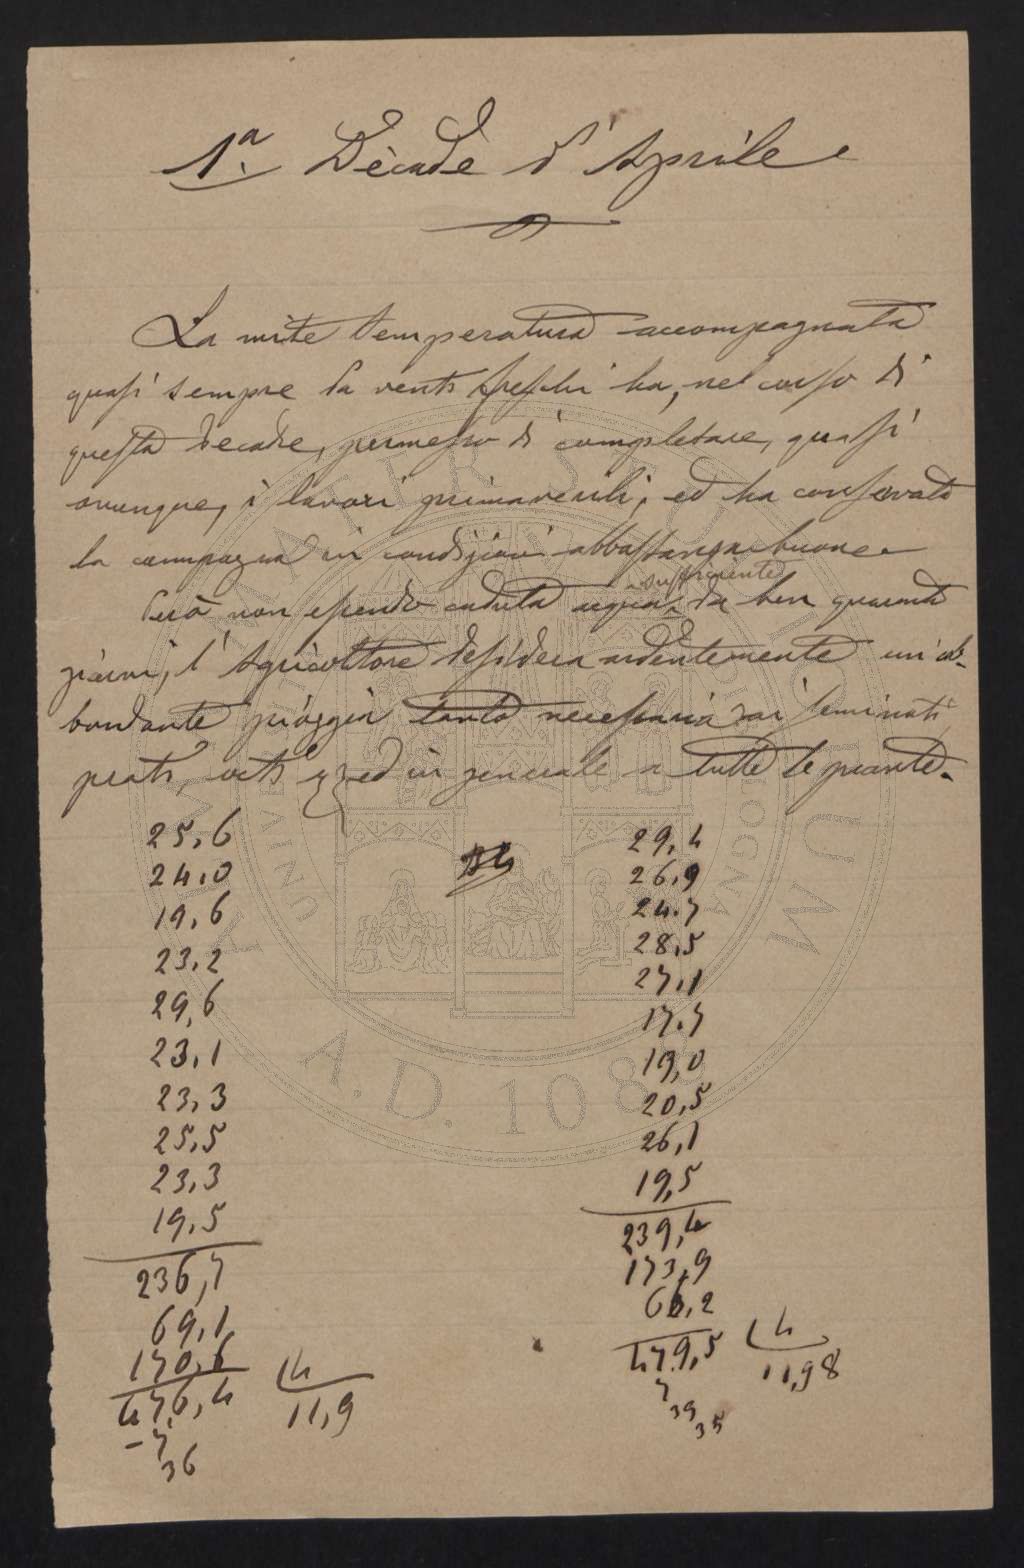 1.a Decade d'Aprile
La mite temperatura accompagnata
quasi sempre da venti freschi ha, nel corso di
questa decade, permesso di completare, quasi
ovunque, i lavori primaverili, ed ha conservato
la campagna in condizioni abbastanza buone.
Però non essendo caduta acqua sufficiente da ben quaranta
giorni, l'Agricoltore desidera ardentemente un'ab-
bondante pioggia tanto necessaria ai seminati
prati, orti ed in generale a tutte le piante.
25,6
24,0
19,6
23,2
29,6
23,1
23,3
25,5
23,3
19,5
236,7
69,1
170,6
476,4 4
11,9
-7
36
29,4
26,9
24,7
28,5
27,1
17,7
19,0
20,5
26,1
19,5
239,4
173,9
66,2
479,5 4
11,98
7
39
35
ALMA MATER STUDIORUM
A.D. 108